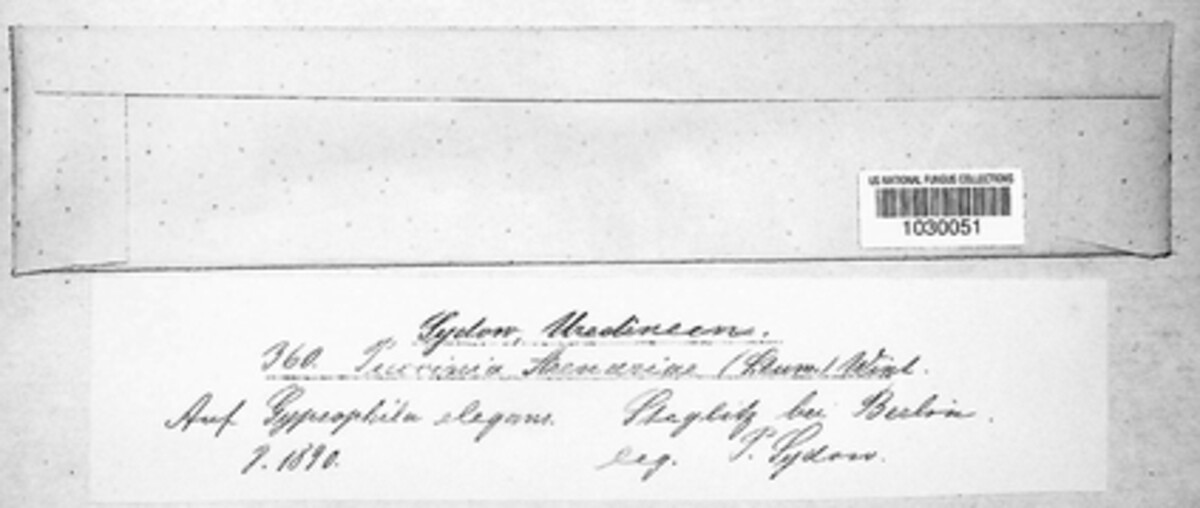 US NATIONAL FUNGUS COLLECTIONS
1030051
Sydow, Uredineen.
360. Puccinia Arenariae (Schum.) Wint.
Auf Gypsophila elegans. Steglitz bei Berlin.
7. 1890. leg. P. Sydow.